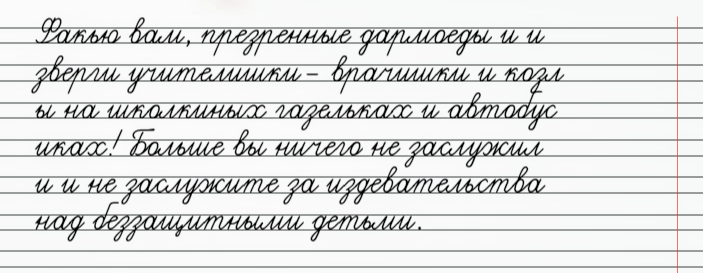 Факью вам, презренные дармоеды и и
зверги учителишки - врачишки и козл
ы на школкиных газельках и автобус
иках! Больше вы ничего не заслужил
и и не заслужите за издевательства
над беззащитными детьми.